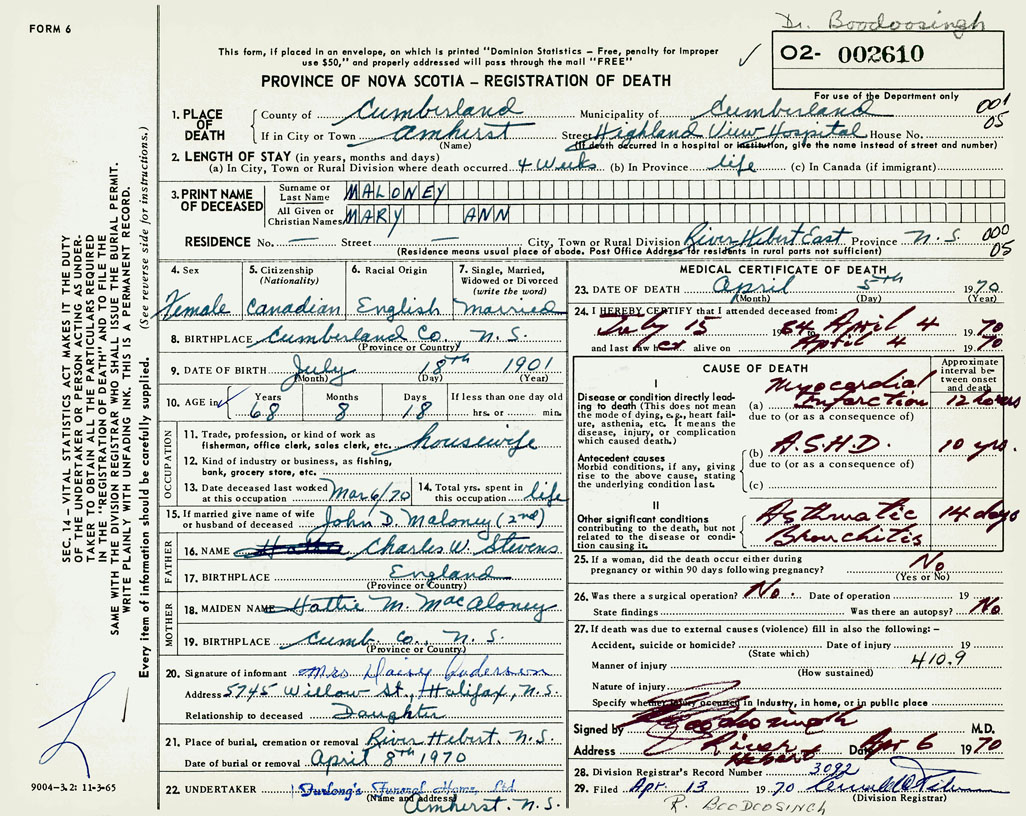 Dr. Boodoosingh
FORM 6
This form, if placed in an envelope, on which is printed "Dominion Statistics – Free, penalty for improper
use $50," and properly addressed will pass through the mail "FREE"
✓ 02- 002610
PROVINCE OF NOVA SCOTIA – REGISTRATION OF DEATH
For use of the Department only
1. PLACE OF DEATH County of Cumberland Municipality of Cumberland 001
If in City or Town Amherst Street Highland View Hospital House No. 05
(Name) (If death occurred in a hospital or institution, give the name instead of street and number)
2. LENGTH OF STAY (in years, months and days)
(a) In City, Town or Rural Division where death occurred 4 Weeks (b) In Province life (c) In Canada (if immigrant)
3. PRINT NAME OF DECEASED Surname or Last Name MALONEY
All Given or Christian Names MARY ANN
RESIDENCE No. — Street — City, Town or Rural Division River Hebert East Province N.S. 000
(Residence means usual place of abode. Post Office Address for residents in rural parts not sufficient) 05
4. Sex 5. Citizenship (Nationality) 6. Racial Origin 7. Single, Married, Widowed or Divorced (write the word)
Female Canadian English Married
8. BIRTHPLACE Cumberland Co. N.S.
(Province or Country)
9. DATE OF BIRTH July 18th 1901
(Month) (Day) (Year)
10. AGE in ✓ Years Months Days If less than one day old
68 8 18 hrs. or min.
OCCUPATION
11. Trade, profession, or kind of work as
fisherman, office clerk, sales clerk, etc. housewife
12. Kind of industry or business, as fishing,
bank, grocery store, etc.
13. Date deceased last worked at this occupation Mar 6/70 14. Total yrs. spent in this occupation life
15. If married give name of wife
or husband of deceased John D. Maloney (2nd)
FATHER
16. NAME Charles W. Stevens
17. BIRTHPLACE England
(Province or Country)
MOTHER
18. MAIDEN NAME Hattie M. MacAloney
19. BIRTHPLACE Cumb. Co., N.S.
(Province or Country)
20. Signature of informant Mrs Daisy Anderson
Address 5745 Willow St., Halifax, N.S.
Relationship to deceased Daughter
21. Place of burial, cremation or removal River Hebert. N.S.
Date of burial or removal April 8th 1970
22. UNDERTAKER Furlong's Funeral Home Ltd
(Name and address) Amherst, N.S.
MEDICAL CERTIFICATE OF DEATH
23. DATE OF DEATH April 5th 1970
(Month) (Day) (Year)
24. I HEREBY CERTIFY that I attended deceased from:
July 15 1964 April 4 1970
and last saw her alive on April 4 1970
CAUSE OF DEATH Approximate interval between onset and death
I
Disease or condition directly leading to death (This does not mean the mode of dying, e.g., heart failure, asthenia, etc. It means the disease, injury, or complication which caused death.)
(a) Myocardial Infarction 12 hours
due to (or as a consequence of)
Antecedent causes
Morbid conditions, if any, giving rise to the above cause, stating the underlying condition last.
(b) A.S.H.D. 10 yrs.
due to (or as a consequence of)
(c)
II
Other significant conditions contributing to the death, but not related to the disease or condition causing it.
Asthmatic Bronchitis 14 days
25. If a woman, did the death occur either during
pregnancy or within 90 days following pregnancy? No
(Yes or No)
26. Was there a surgical operation? No. Date of operation 19
State findings Was there an autopsy? No
27. If death was due to external causes (violence) fill in also the following: –
Accident, suicide or homicide? Date of injury 19
(State which)
Manner of injury 410.9
(How sustained)
Nature of injury
Specify whether injury occurred in industry, in home, or in public place
Signed by Boodoosingh M.D.
Address River Hebert Date Apr 6 1970
28. Division Registrar's Record Number 3092
29. Filed Apr. 13 1970
(Division Registrar)
R. BOODOOSINGH
SEC. 14 – VITAL STATISTICS ACT MAKES IT THE DUTY
OF THE UNDERTAKER OR PERSON ACTING AS UNDER-
TAKER TO OBTAIN ALL THE PARTICULARS REQUIRED
IN THE "REGISTRATION OF DEATH" AND TO FILE THE
SAME WITH THE DIVISION REGISTRAR WHO SHALL ISSUE THE BURIAL PERMIT.
WRITE PLAINLY WITH UNFADING INK. THIS IS A PERMANENT RECORD.
Every item of information should be carefully supplied. (See reverse side for instructions.)
9004–3.2: 11-3-65